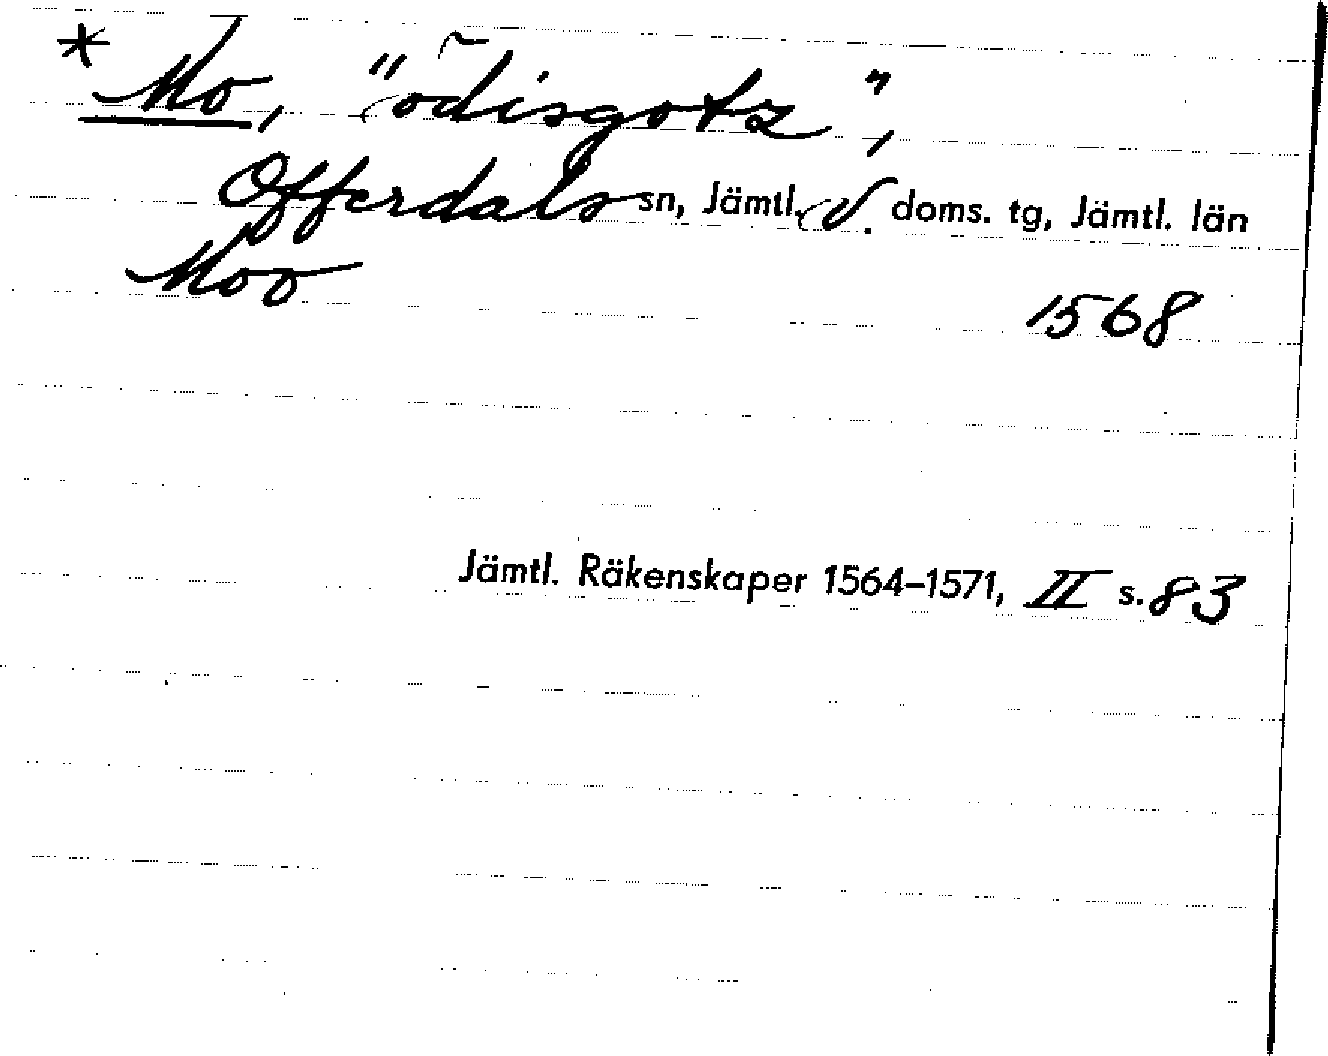 * Mo, "ödisgotz",
Offerdals sn, Jämtl. v. doms. tg, Jämtl. län
Moo
1568
Jämtl. Räkenskaper 1564–1571, II s. 83